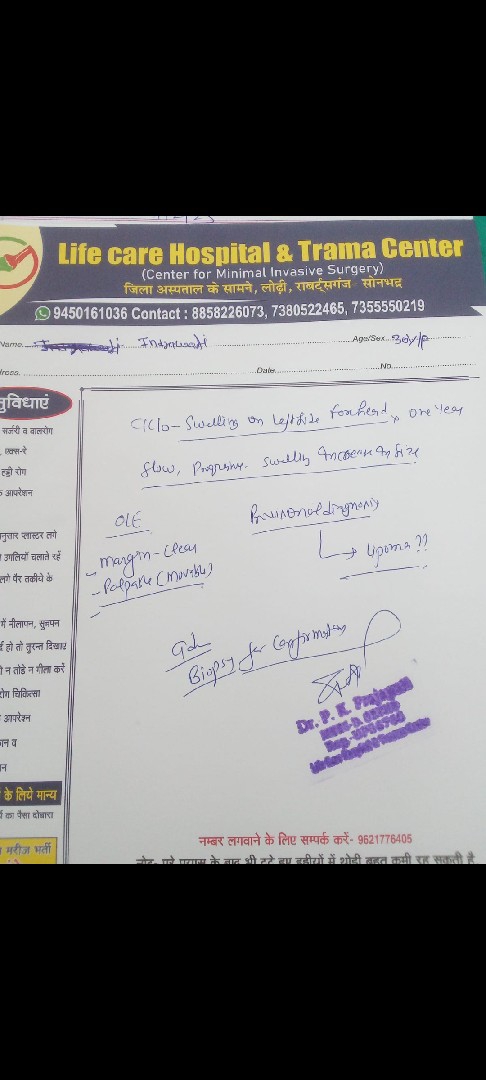 Life care Hospital & Trama Center
(Center for Minimal Invasive Surgery)
जिला अस्पताल के सामने, लोढ़ी, राबर्ट्सगंज सोनभद्र
9450161036 Contact : 8858226073, 7380522465, 7355550219
Name Indrawati Age/Sex 30y/F
ress Date No
सुविधाएं
सर्जरी व बालरोग
एक्स-रे
हड्डी रोग
आपरेशन
नुसार प्लास्टर लगे
उंगलियाँ चलाते रहें
लगे पैर तकीये के
में नीलापन, सुन्नपन
र्द हो तो तुरन्त दिखाए
न तोडे न गीला करें
रोग चिकित्सा
आपरेशन
के लिये मान्य
का पैसा दोबारा
मरीज भर्ती
C/C/o - Swelling on left side Forehead x one year
Slow, Progressive swelling increase in size
O/E
- Margin - clear
- Palpable (Movable)
Provisional diagnosis
→ lipoma ??
Adv
Biopsy for confirmation
Dr. P. K. Prajapati
नम्बर लगवाने के लिए सम्पर्क करें- 9621776405
नोट- पूरे प्रयास के बाद भी टूटे हुए हड्डीयों में थोड़ी बहुत कमी रह सकती है